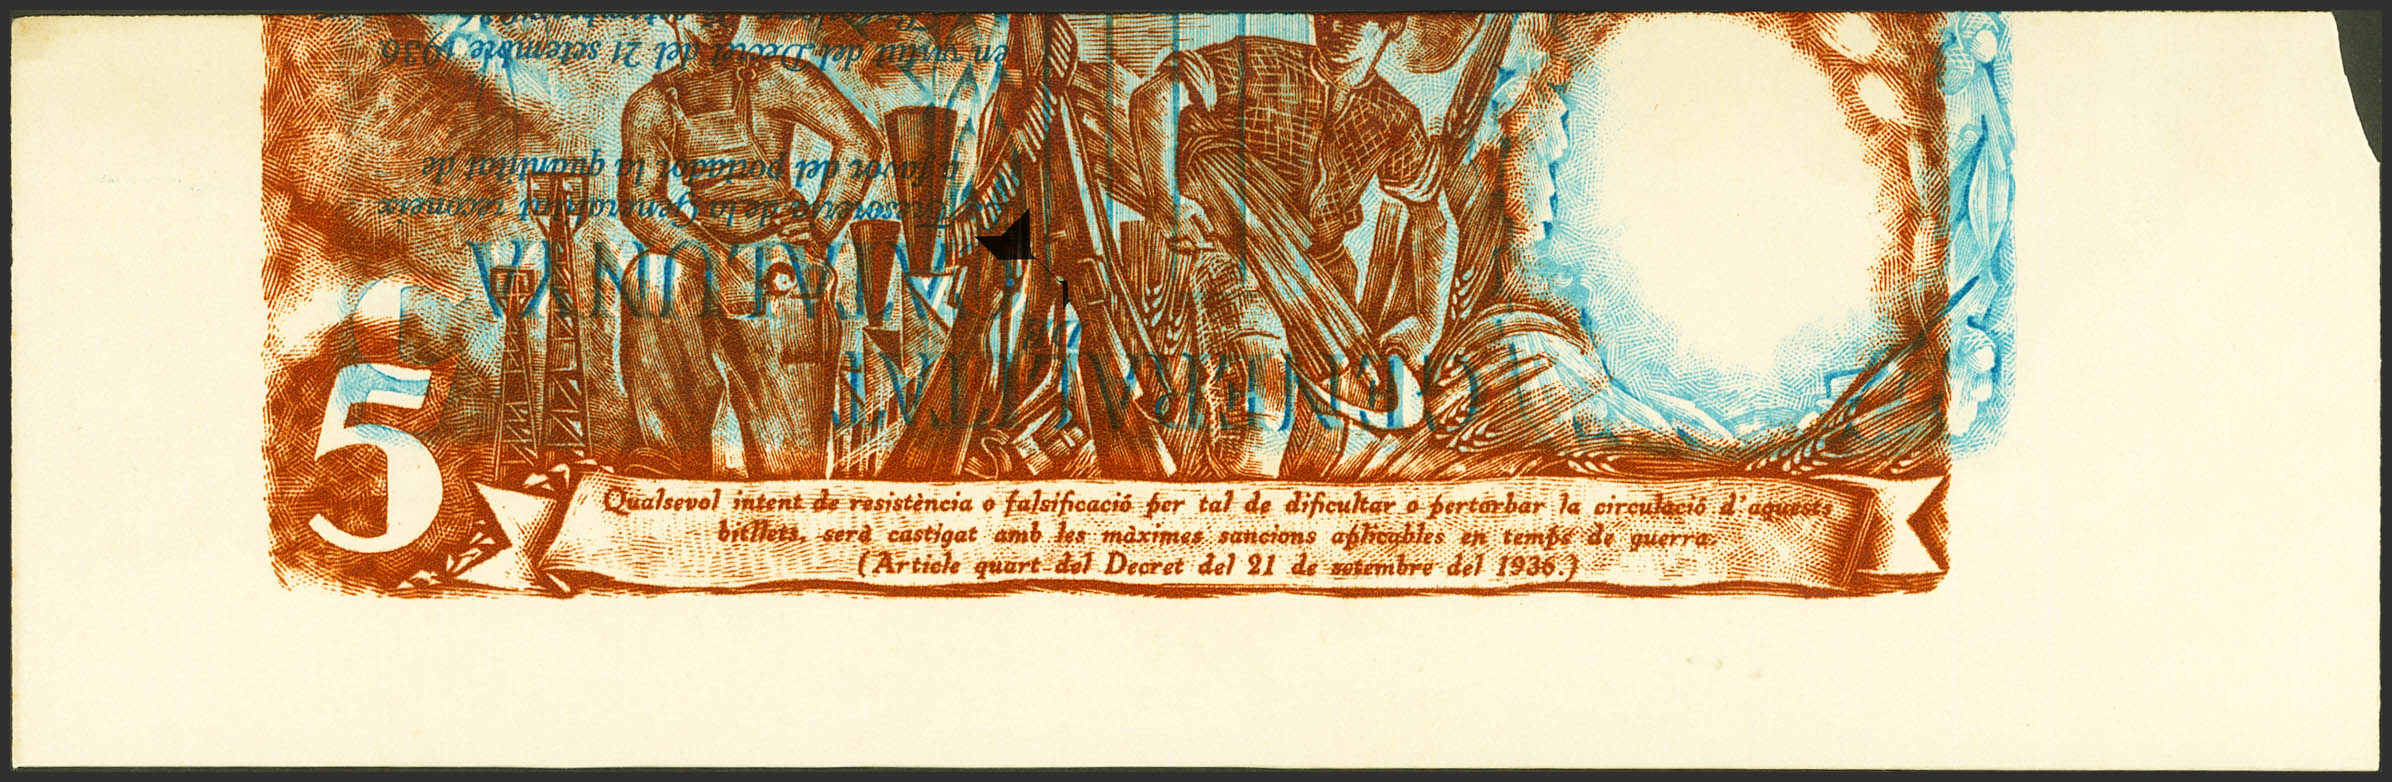 5
Qualsevol intent de resistència o falsificació per tal de dificultar o pertorbar la circulació d'aquests
bitllets, serà castigat amb les màximes sancions aplicables en temps de guerra.
(Article quart del Decret del 21 de setembre del 1936.)
GENERALITAT
DE
CATALUNYA
La Tresoreria de la Generalitat reconeix
a favor del portador la quantitat de
en virtut del Decret del 21 setembre 1936